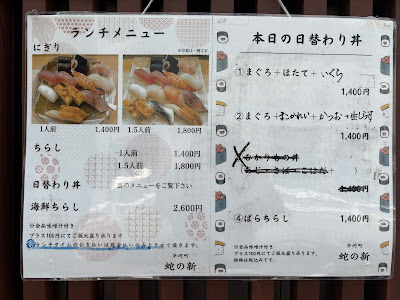 ランチメニュー
にぎり
1人前 1,400円
1.5人前 1,800円
ちらし
1人前 1,400円
1.5人前 1,800円
日替わり丼 右のメニューをご覧下さい
海鮮ちらし 2,600円
※全品味噌汁付き
プラス100円にてご飯大盛り承ります。
ランチタイムのお支払いは現金払いのみとさせて頂きます。
蛇の新
本日の日替わり丼
①まぐろ+ほたて+いくら
1,400円
②まぐろ+
かつお+
1,400円
④ばらちらし 1,400円
※全品味噌汁付き
プラス100円にてご飯大盛り承ります。
価格は税込みです。
蛇の新